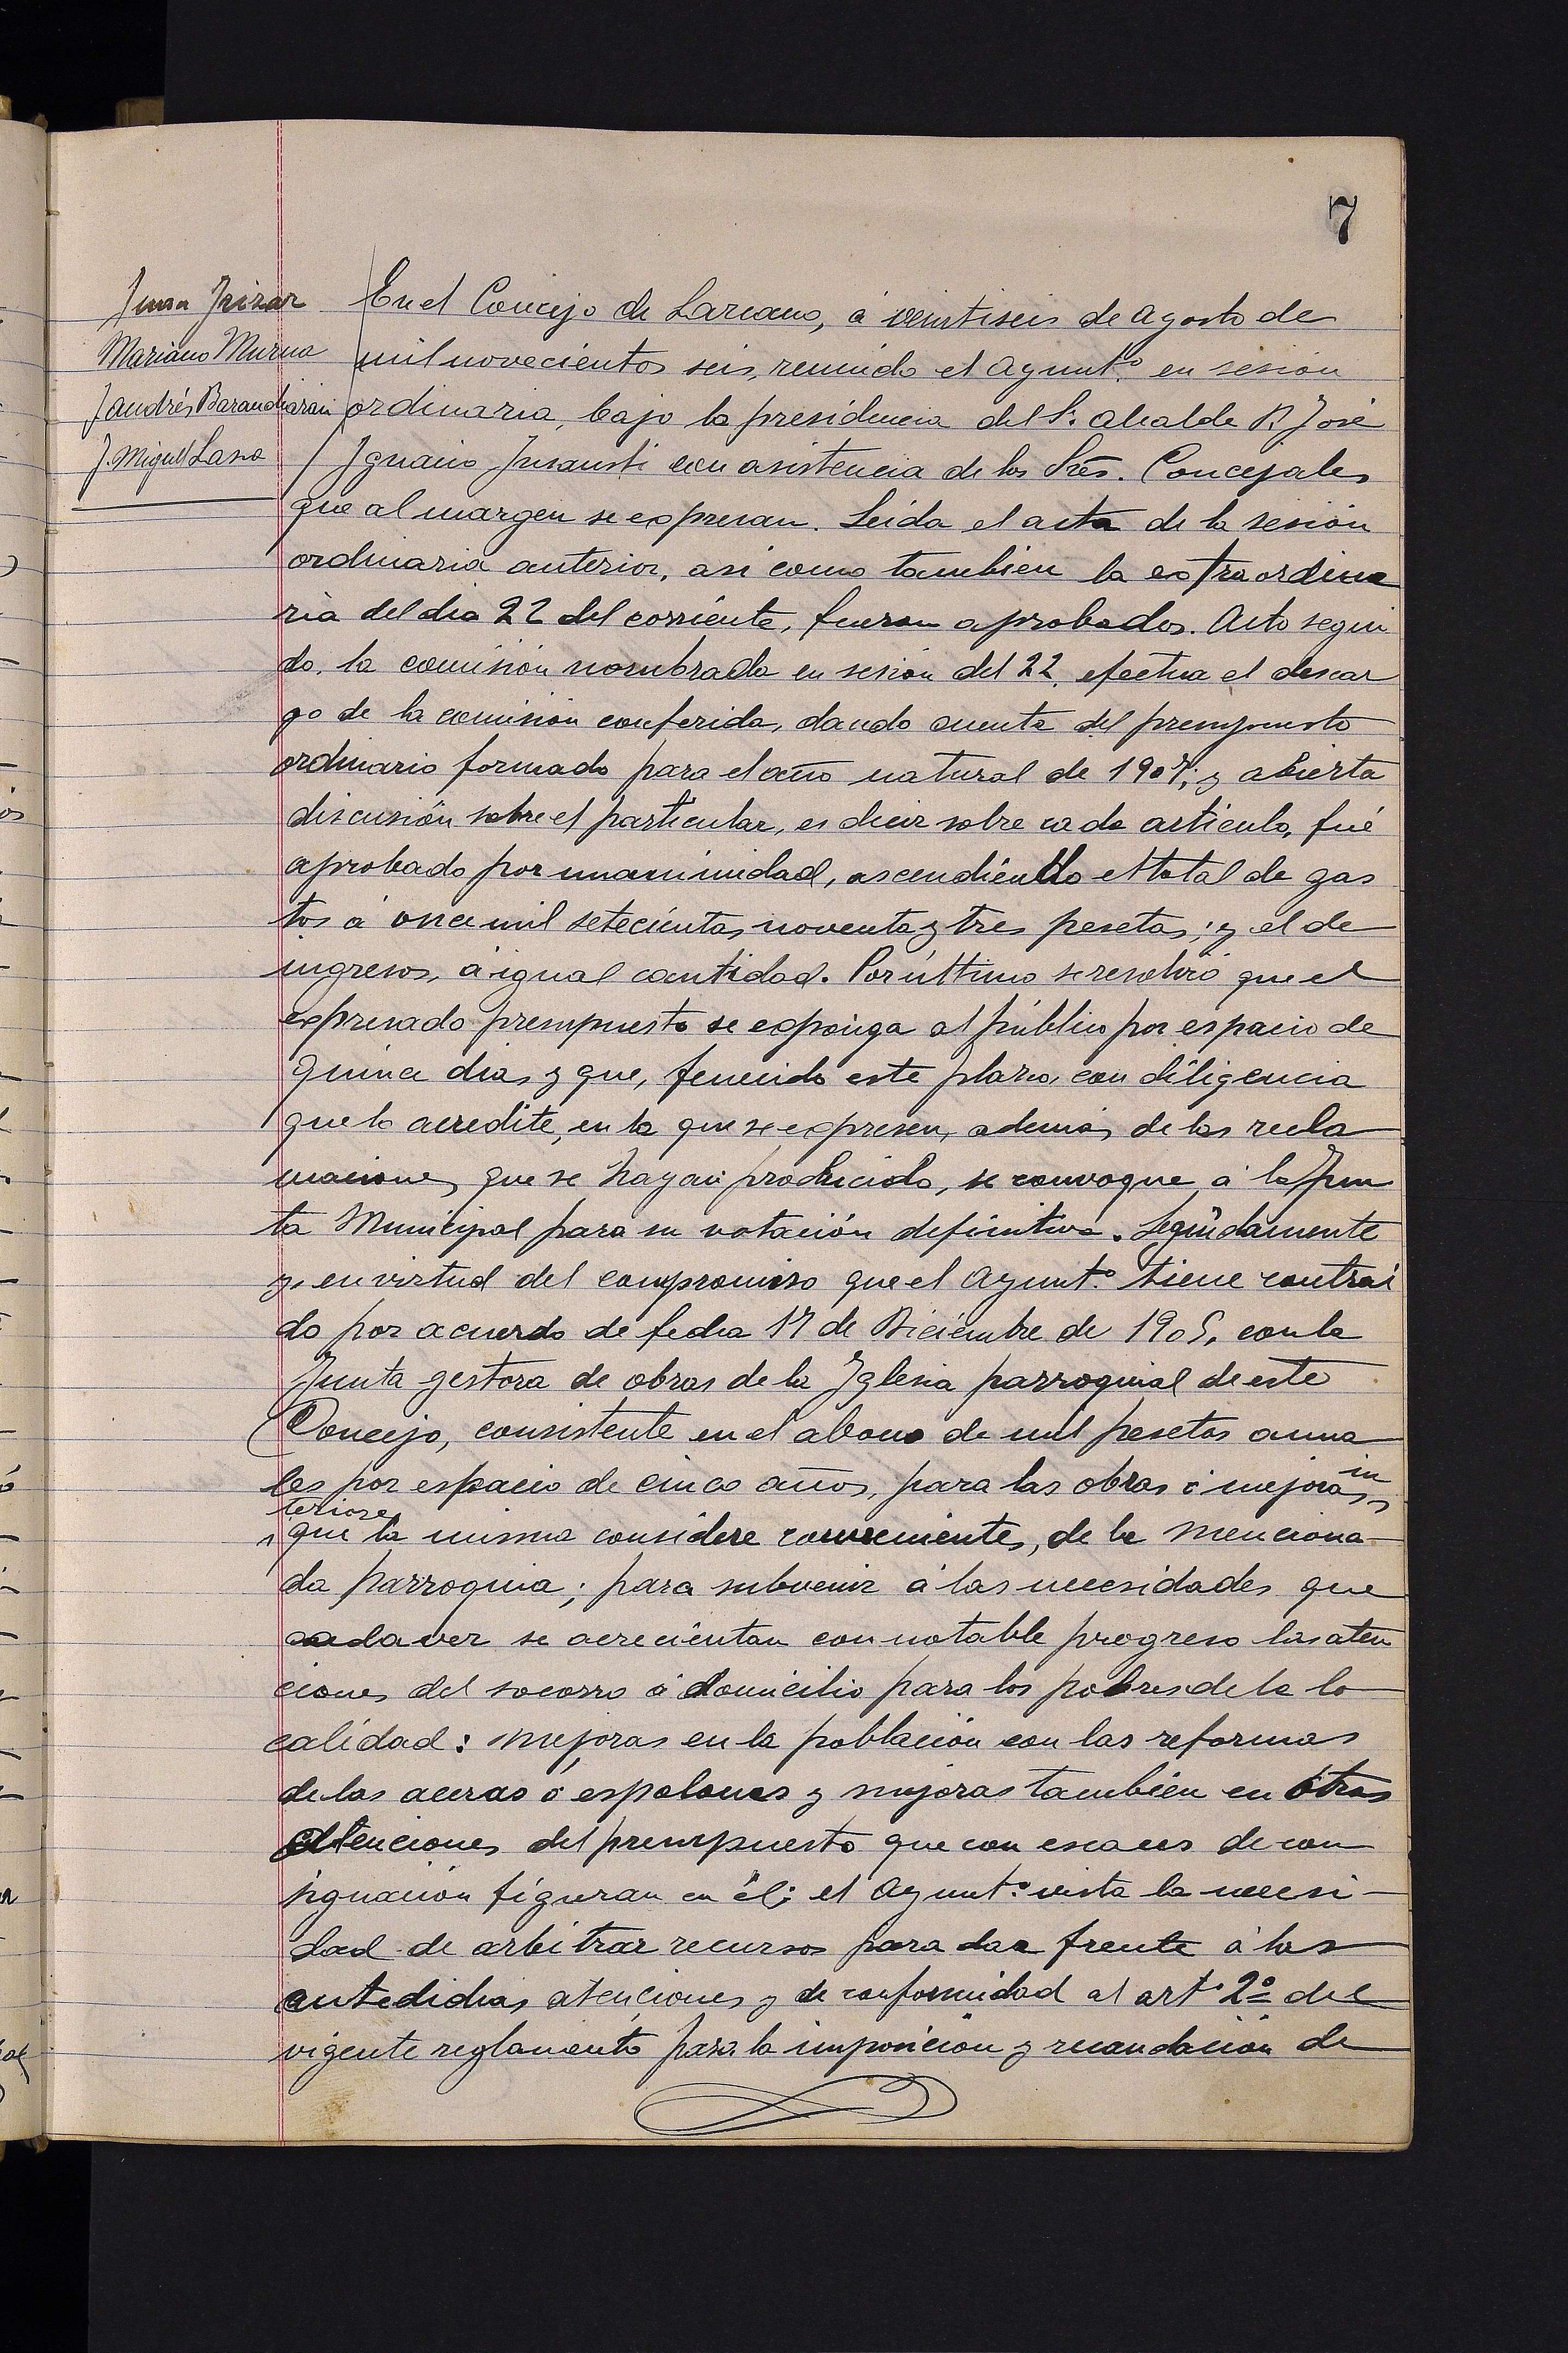 7
Juan Irizar
Mariano Murua
J Andrés Barandiarán
J. Miguel Lasa
En el Concejo de Lazcano, á veintiseis de Agosto de
mil novecientos seis, reunido el Ayunt.º en sesión
ordinaria, bajo la presidencia del Sr. Alcalde D. José
Ignacio Insausti con asistencia de los Sres. Concejales
que al margen se expresan. Leida el acta de la sesión
ordinaria anterior, así como tambien la extraordina
ria del dia 22 del corriente, fueron aprobados. Acto segui
do, la comisión nombrada en sesión del 22, efectua el descar
go de la comisión conferida, dando cuenta del presupuesto
ordinario formado para el año natural de 1907; y abierta
discusión sobre el particular, es decir sobre cada articulo, fué
aprobado por unanimidad, ascendiendo el total de gas
tos á once mil setecientas noventa y tres pesetas; y el de
ingresos, á igual cantidad. Por último se resolvió que el
expresado presupuesto se exponga al público por espacio de
quince dias y que, fenecido este plazo, con diligencia
que lo acredite, en la que se expresen, además de las recla
maciones que se hayan producido, se convoque á la Jun
ta Municipal para su votación definitiva. Seguidamente
y en virtud del compromiso que el Ayunt.º tiene contrai
do por acuerdo de fecha 17 de Diciembre de 1905, con la
Junta gestora de obras de la Iglesia parroquial de este
Concejo, consistente en el abono de mil pesetas anua
les por espacio de cinco años, para las obras ó mejoras in
teriores
que la misma considere convenientes, de la menciona-
da parroquia; para subvenir á las necesidades que
cada vez se acrecientan con notable progreso las aten
ciones del socorro á domicilio para los pobres de la lo
calidad: mejoras en la población con las reformas
de las aceras ó espolones y mejoras también en otras
atenciones del presupuesto que con escases de con
signación figuran en él; el Ayunt.º vista la necesi-
dad de arbitrar recursos para dar frente á las
antedichas atenciones y de conformidad al art.º 2º del
vigente reglamento para la imposición y recaudación de